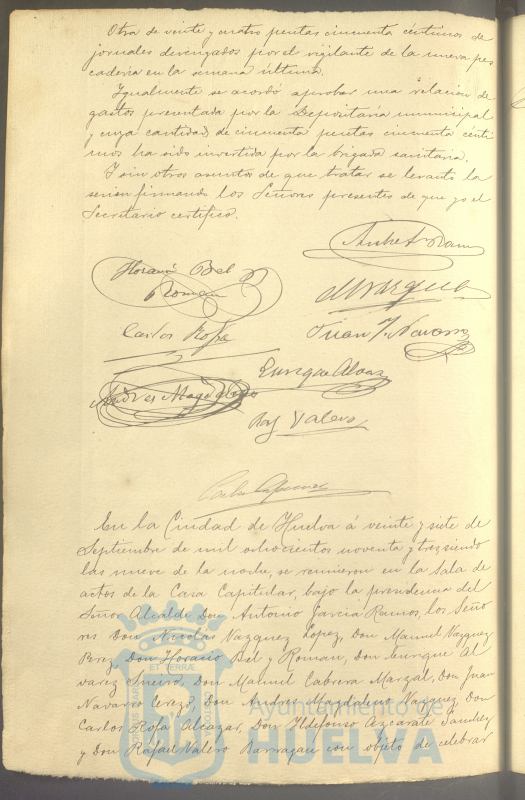 Otra de veinte y cuatro pesetas cincuenta céntimos de
jornales devengados por el vigilante de la nueva pes
cadería en la semana última.
Igualmente se acordó aprobar una relación de
gastos presentada por la Depositaría municipal
y cuya cantidad de cincuenta pesetas cincuenta cénti
mos ha sido invertida por la brigada sanitaria.
Y sin otros asuntos de que tratar se levantó la
sesion firmando los Señores presentes de que yo el
Secretario certifico.
Horacio Bel y
Roman
M Vazquez
Carlos Rofa
Juan J. Navarro
Enrique Alvarez
Andres Magdaleno
Raf Valero
En la Ciudad de Huelva á veinte y siete de
Septiembre de mil ochocientos noventa y tres siendo
las nueve de la noche, se reunieron en la Sala de
actos de la Casa Capitular, bajo la presidencia del
Señor Alcalde Don Antonio García Ramos, los Seño
res Don Nicolás Vázquez López, Don Manuel Vazquez
Perez, Don Horacio Bel y Roman, Don Enrique Al
varez Don Manuel Cabrera Marzal, Don Juan
Navarro Cerezo, Don Andres Magdaleno Vazquez, Don
Carlos Rofa Alcazar, Don Ildefonso Azcarate Sanchez
y Don Rafael Valero Barragan con objeto de celebrar
Ayuntamiento de
HUELVA